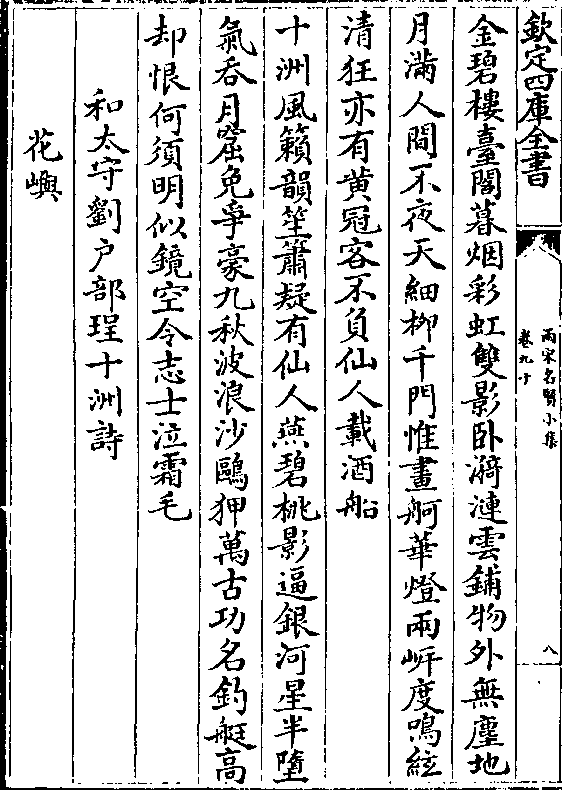 欽定四庫全書
兩宋名賢小集
卷九十
八
金碧樓臺閣暮烟彩虹雙影卧漪漣雲鋪物外無塵地
月滿人間不夜天細柳千門惟畫舸華燈兩岍度鳴絃
清狂亦有黄冠客不負仙人載酒船
十洲風籟韻笙簫疑有仙人燕碧桃影逼銀河星半墮
氣吞月窟兔爭豪九秋波浪沙鷗狎萬古功名釣艇高
却恨何須明似鏡空令志士泣霜毛
和太守劉户部珵十洲詩
花嶼